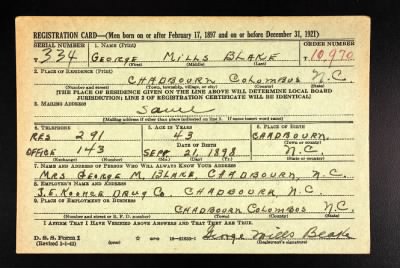 REGISTRATION CARD—(Men born on or after February 17, 1897 and on or before December 31, 1921)
SERIAL NUMBER 1. NAME (Print) ORDER NUMBER
334 GEORGE MILLS BLAKE 10,970
(First) (Middle) (Last)
2. PLACE OF RESIDENCE (Print)
CHADBOURN COLOMBUS N.C.
(Number and street) (Town, township, village, or city) (County) (State)
[THE PLACE OF RESIDENCE GIVEN ON THE LINE ABOVE WILL DETERMINE LOCAL BOARD
JURISDICTION; LINE 2 OF REGISTRATION CERTIFICATE WILL BE IDENTICAL]
3. MAILING ADDRESS
Same
[Mailing address if other than place indicated on line 2. If same insert word same]
4. TELEPHONE 5. AGE IN YEARS 6. PLACE OF BIRTH
RES 291 43 CHADBOURN
DATE OF BIRTH (Town or county)
OFFICE 143 SEPT 21, 1898 N.C
(Exchange) (Number) (Mo.) (Day) (Yr.) (State or country)
7. NAME AND ADDRESS OF PERSON WHO WILL ALWAYS KNOW YOUR ADDRESS
MRS. GEORGE M. BLAKE, CHADBOURN, N.C.
8. EMPLOYER'S NAME AND ADDRESS
J.E. KOONCE DRUG CO CHADBOURN, N.C.
9. PLACE OF EMPLOYMENT OR BUSINESS
CHADBOURN COLOMBUS N.C.
(Number and street or R. F. D. number) (Town) (County) (State)
I AFFIRM THAT I HAVE VERIFIED ABOVE ANSWERS AND THAT THEY ARE TRUE.
D. S. S. Form 1
(Revised 1-1-42) (over) George Mills Blake
(Registrant's signature)